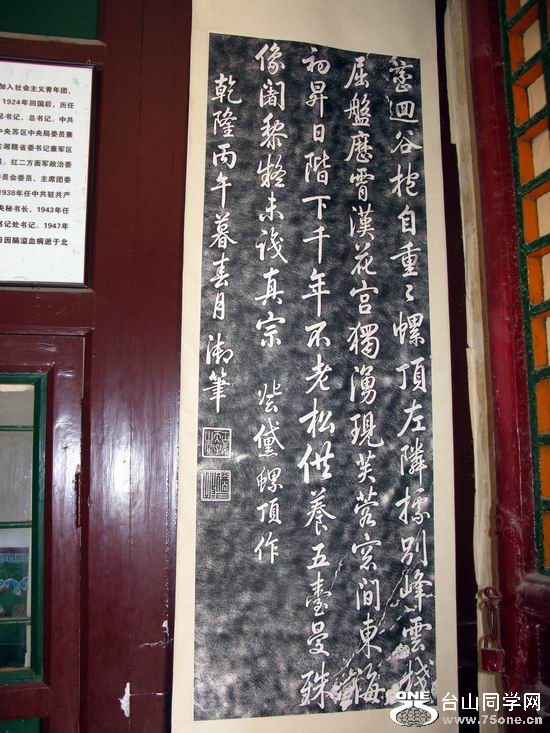 巒迴谷抱自重〻螺頂左隣據別峰雲棧
屈盤歷霄漢花宮獨湧現芙蓉窓間東海
初昇日階下千年不老松供養五臺曼殊
像闍黎未識真宗 登黛螺頂作
乾隆丙午暮春月御筆
加入社会主义青年团,
1924年回国后,历任
总书记、总书记。中共
中央苏区中央局委员兼
湘赣省委书记兼军区
。红二方面军政治委
员会委员、主席团委
1938年任中共驻共产
央秘书长、1943年任
书记处书记。1947年
日因脑溢血病逝于北
ONE
台山同学网
www.75one.cn